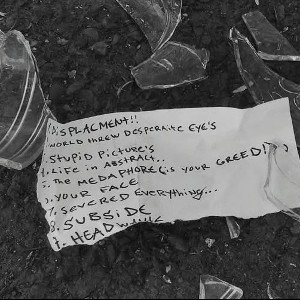 DISPLACMENT!!
WORLD THREW DESPERATE EYE'S
STUPID PICTURE'S
LIFE IN ABSTRACT..
5. THE MEDAPHORE (is YOUR GREED!?)
YOUR FACE
7. SEVERED EVERYTHING...
8. SUBSIDE
HEAD